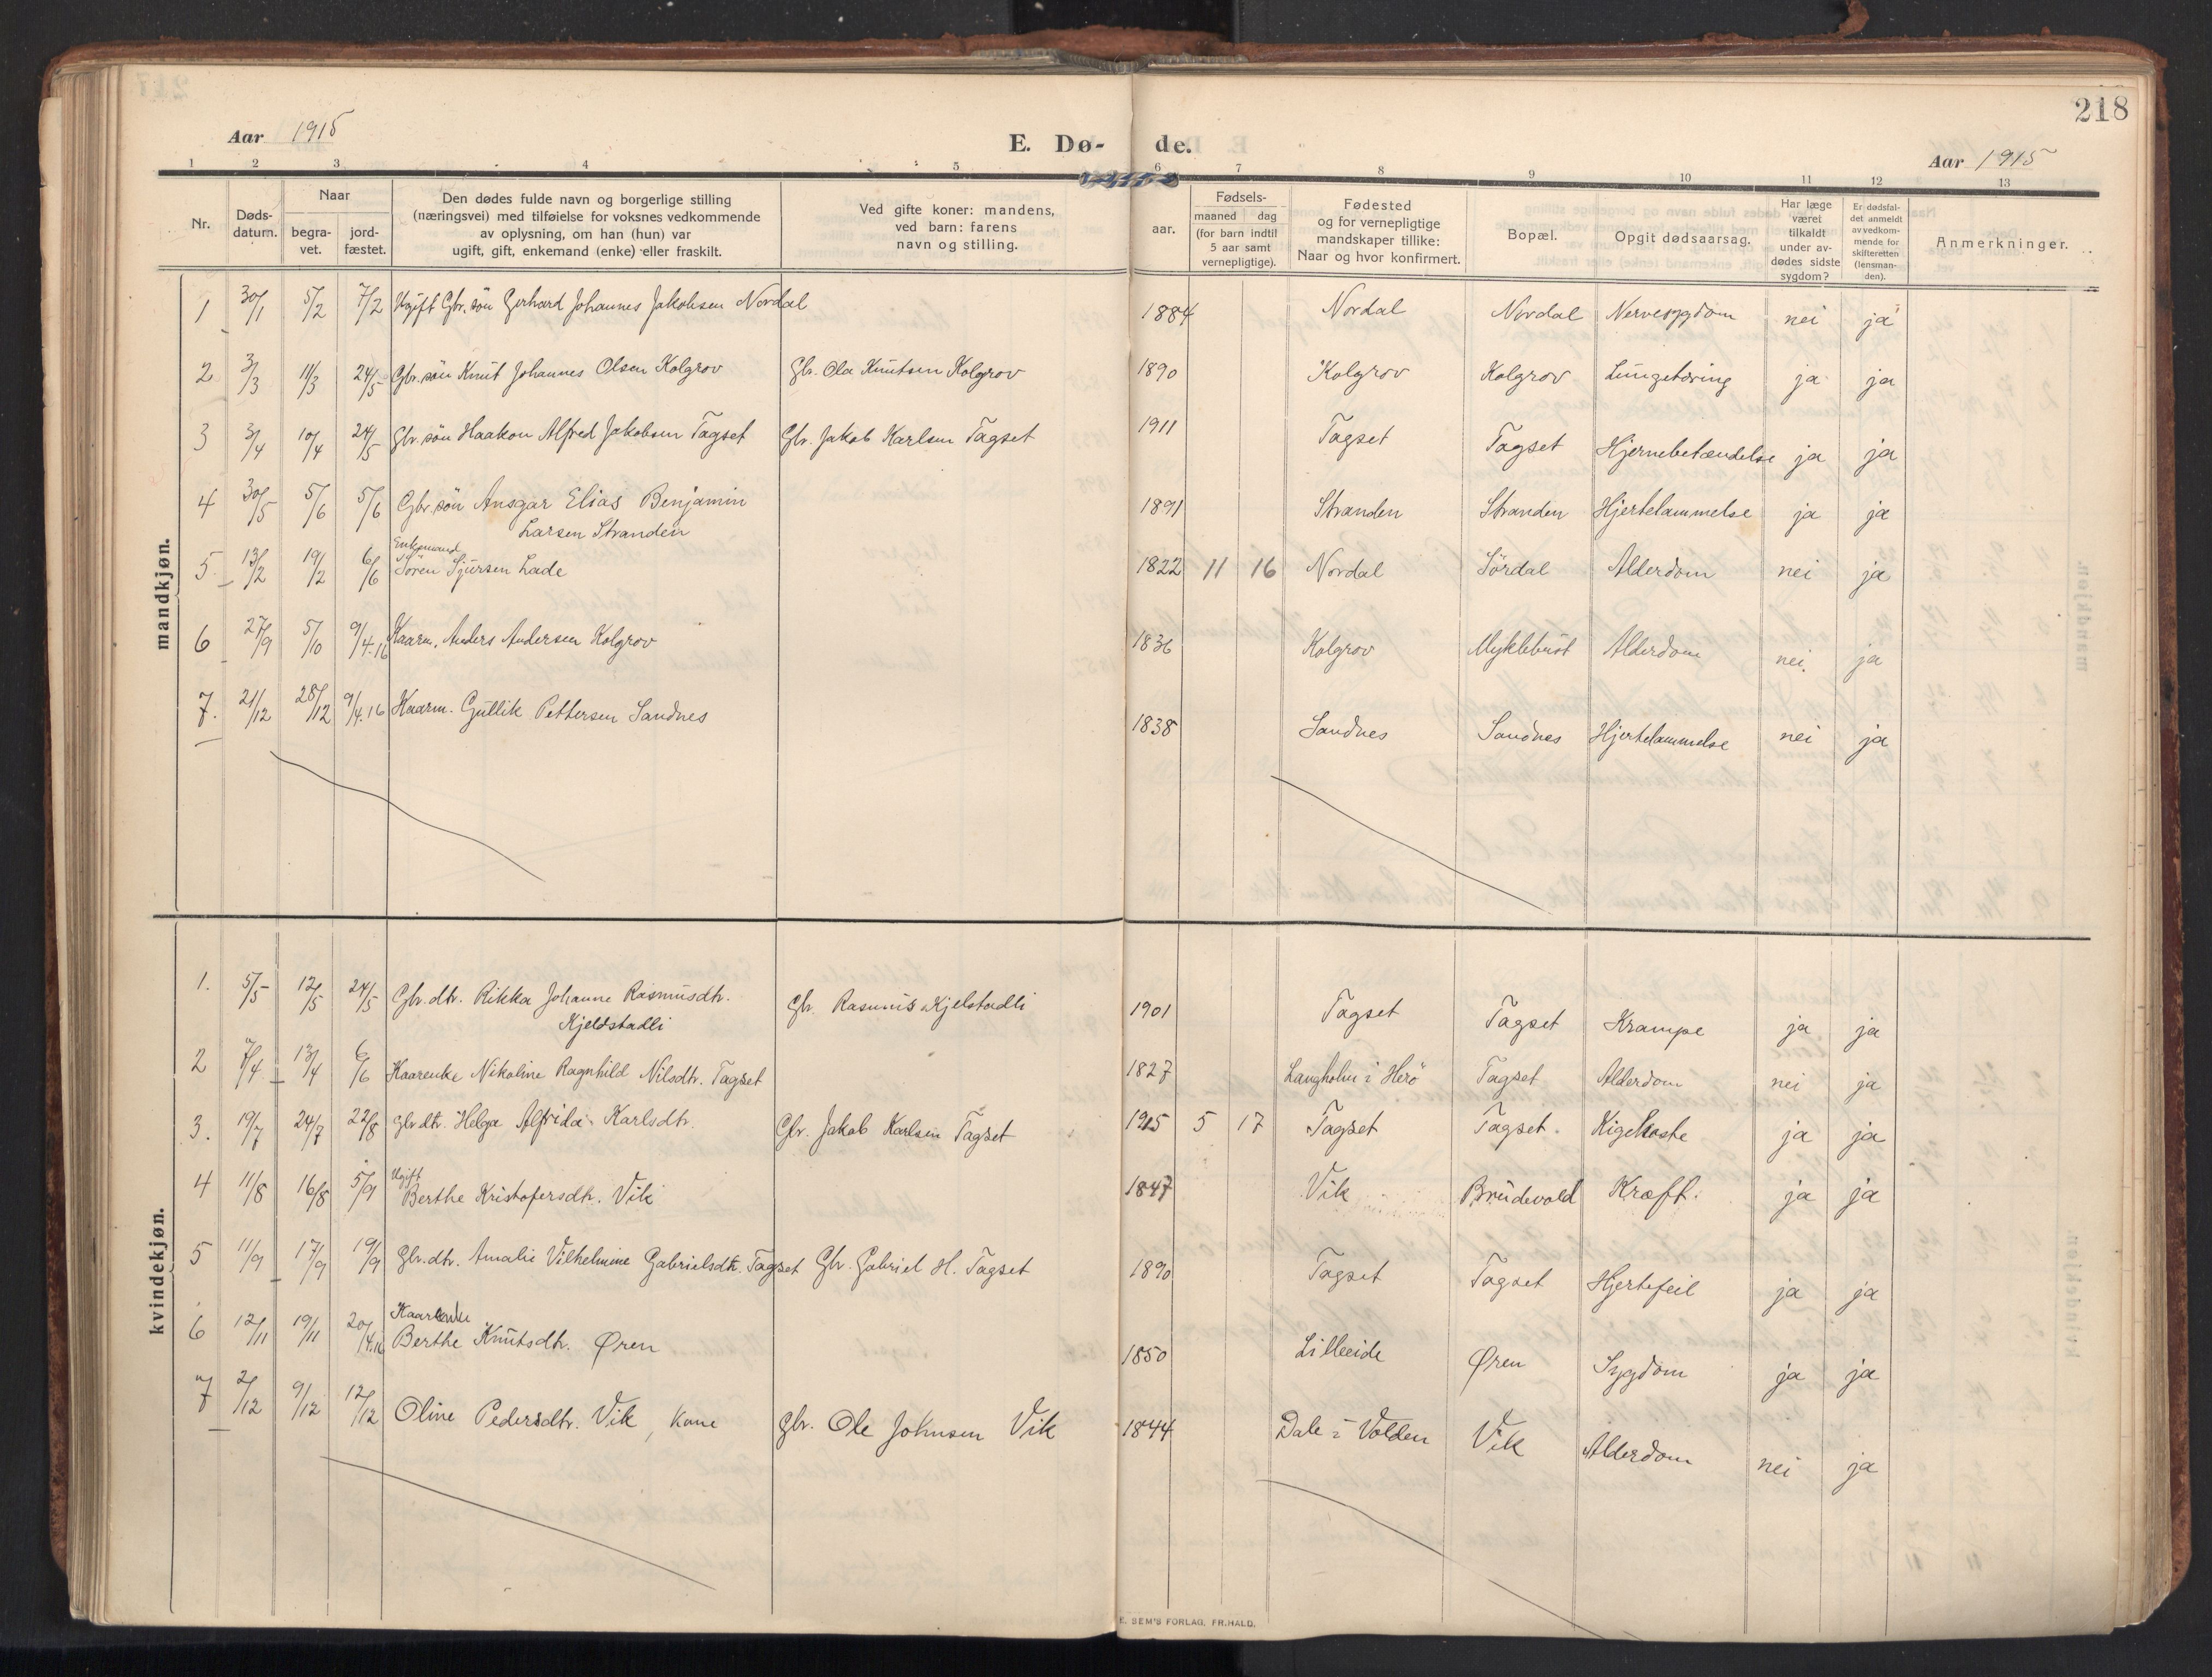 218
Aar 1915 E. Dø- de. Aar 1915
1 2 3 4 5 6 7 8 9 10 11 12 13
Nr. Døds-datum. Naar begra-vet. jord-fæstet. Den dødes fulde navn og borgerlige stilling (næringsvei) med tilføielse for voksnes vedkommende av oplysning, om han (hun) var ugift, gift, enkemand (enke) eller fraskilt. Ved gifte koner: mandens, ved barn: farens navn og stilling. aar. Fødsels- maaned dag (for barn indtil 5 aar samt vernepligtige). Fødested og for vernepligtige mandskaper tillike: Naar og hvor konfirmert. Bopæl. Opgit dødsaarsag. Har læge været tilkaldt under av-dødes sidste sygdom? Er dødsfal-det anmeldt av vedkom-mende for skifteretten (lensman-den). Anmerkninger.
mandkjøn.
1 30/1 5/2 7/2 Ugift Gbr. søn Gerhard Johannes Jakobsen Nordal 1884 Nordal Nordal Nervesygdom nei ja
2 3/3 11/3 24/5 Gbr. søn Knut Johannes Olsen Kolgrov Gbr. Ola Knutsen Kolgrov 1890 Kolgrov Kolgrov Lungetæring ja ja
3 3/4 10/4 24/5 Gbr. søn Haakon Alfred Jakobsen Tagset Gbr. Jakob Karlsen Tagset 1911 Tagset Tagset Hjernebetændelse ja ja
4 30/5 5/6 5/6 Gbr. søn Ansgar Elias Benjamin
Larsen Stranden 1891 Stranden Stranden Hjertelammelse ja ja
Enkemand
5. 13/2 19/2 6/6 Søren Sjursen Lade 1822 11 16 Nordal Sørdal Alderdom nei ja
6 27/9 5/10 9/4.16 Kaarm. Anders Andersen Kolgrov 1836 Kolgrov Myklebust Alderdom nei. ja
7. 21/12 28/12 9/4.16 Kaarm. Gullik Pettersen Sandnes 1838 Sandnes Sandnes Hjertelammelse nei ja
kvindekjøn.
1. 5/5 12/5 24/5 Gbr. dtr. Rikka Johanne Rasmusdtr.
Kjeldstadli Gbr. Rasmus Kjelstadli 1901 Tagset Tagset Krampe ja ja
2 7/4 13/4 6/6 Kaarenke Nikoline Ragnhild Nilsdtr. Tagset 1827 Langholm i Herø Tagset Alderdom nei ja
3. 19/7 24/7 22/8 Gbr dtr. Helga Alfrida Karlsdtr. Gbr. Jakob Karlsen Tagset 1915 5 17 Tagset Tagset. Kighoste ja ja
Ugift
4 11/8 16/8 5/9 Berthe Kristofersdtr. Vik 1847 Vik Brudevold Kræft. ja ja
5 11/9 17/9 19/9 Gbr. dtr. Amalie Vilhelmine Gabrielsdtr. Tagset Gbr. Gabriel H. Tagset 1890 Tagset Tagset Hjertefeil ja ja
Kaarenke
6 12/11 19/11 20/4.16 Berthe Knutsdtr. Øren 1850 Lilleeide Øren Sygdom ja ja
7 2/12 9/12 12/12 Oline Pedersdtr. Vik, kone Gbr. Ole Johnsen Vik 1844 Dale i Volden Vik Alderdom nei ja
E. SEM'S FORLAG, FR.HALD.